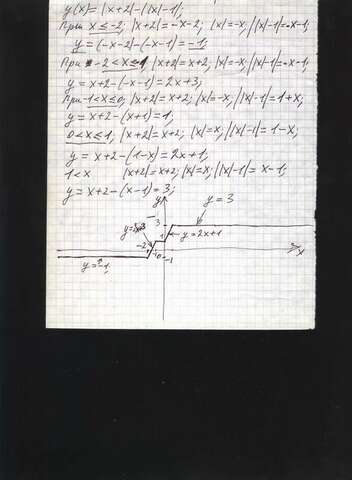 y(x) = |x+2| - ||x|-1|;
При x ≤ -2; |x+2| = -x-2; |x| = -x; ||x|-1| = -x-1;
y = (-x-2) - (-x-1) = -1;
При -2 < x ≤ -1 |x+2| = x+2; |x| = -x; ||x|-1| = -x-1,
y = x+2 - (-x-1) = 2x+3;
При -1 < x ≤ 0; |x+2| = x+2; |x| = -x; ||x|-1| = 1+x;
y = x+2 - (x+1) = 1;
0 < x ≤ 1; |x+2| = x+2; |x| = x; ||x|-1| = 1-x;
y = x+2 - (1-x) = 2x+1;
1 < x |x+2| = x+2; |x| = x; ||x|-1| = x-1;
y = x+2 - (x-1) = 3;
y
y = 3
3
y = 2x+1
1
-2
0
-1
x
y = -1;